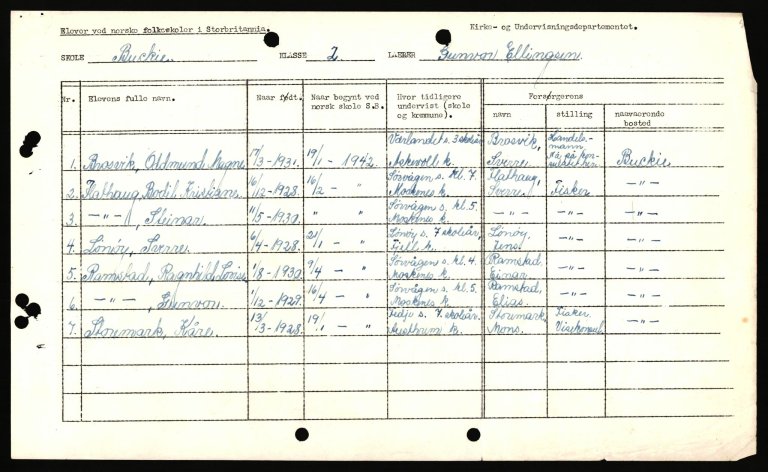 Elever ved norske folkeskoler i Storbritannia.
Kirke- og Undervisningsdepartementet.
SKOLE Buckie. KLASSE 2 LÆRER Gunvor Ellingsen.
Nr. Elevens fulle navn. Naar født. Naar begynt ved norsk skole S.B. Hvor tidligere undervist (skole og kommune). Forsørgerens
navn stilling nåværende bosted
1. Brosvik, Oldmund Magne 17/3-1931. 19/1-1942. Værlandet s. 3 skoleår, Askvoll k. Brosvik, Sverre. Handelsmann. Buckie
2. Flathaug, Bodil Kristians. 16/12-1928. 16/2 — " Sørvågen s. kl. 7. Moskenes k. Flathaug, Sverre. Fisker — " —
3. — " —, Steinar. 11/5-1930. " " Sørvågen s. kl. 5. Moskenes k. — " — — " — — " —
4. Lönöy, Sverre. 6/4-1928. 21/1 — " Lönöy s. 7 skoleår, Fjell k. Lönöy, Jens. — " — — " —
5. Ramstad, Ragnhild Lovise 1/8-1930. 9/4 — " Sørvågen s. kl. 4. Moskenes k. Ramstad, Einar. — " — — " —
6. — " —, Gunvor. 1/12-1929. 16/4 — " Sørvågen s. kl. 5. Moskenes k. Ramstad, Elias. — " — — " —
7. Stormark, Kåre. 13/3-1928. 19/1 — " 7 skoleår. k. Stormark, Mons. Fisker. Visekonsul. — " —